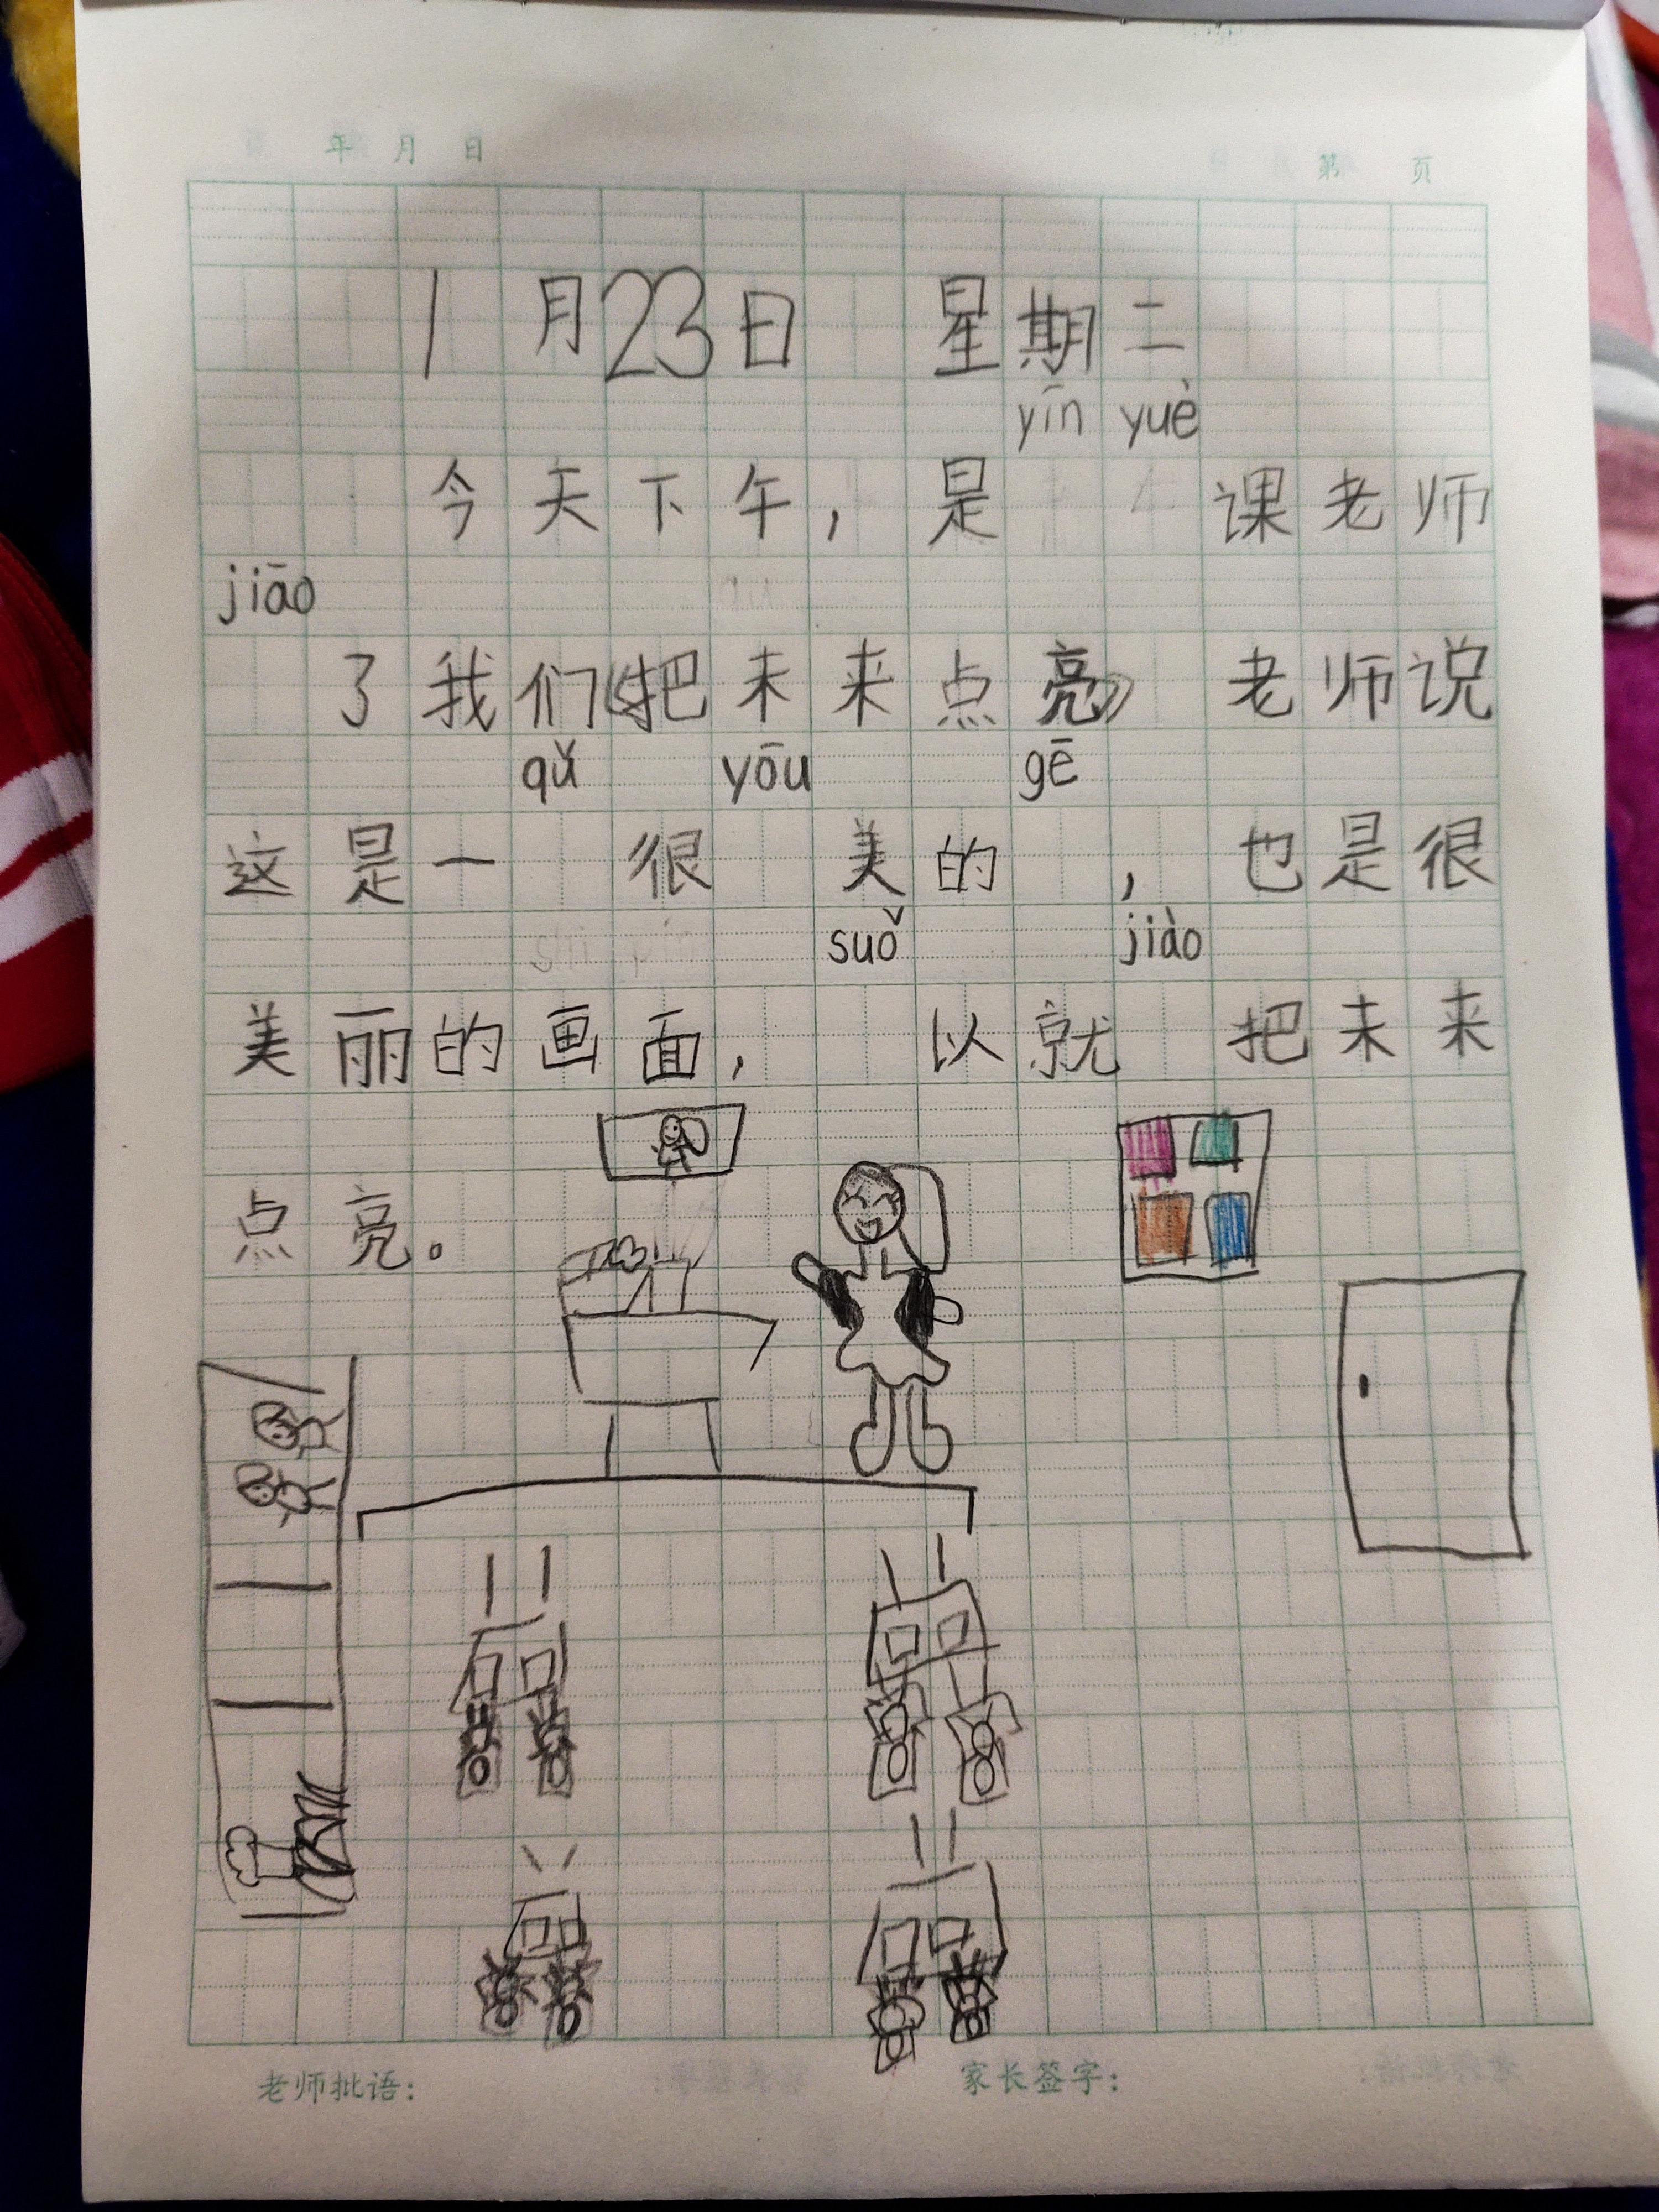 年 月 日 第 页
1月23日 星期二
yīn yuè
今天下午，是 课老师
jiāo
了我们《把未来点亮》 老师说
qǔ yōu gē
这是一 很 美的 ，也是很
suǒ jiào
美丽的画面， 以就 把未来
点亮。
老师批语： 家长签字：